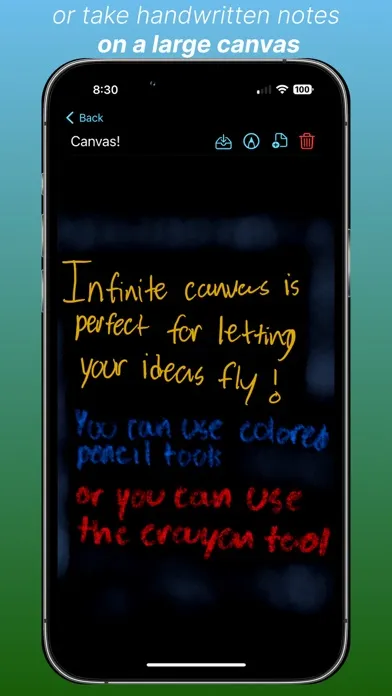 or take handwritten notes
on a large canvas
8:30
100
Back
Canvas!
Infinite canvas is
perfect for letting
your ideas fly!
You can use colored
pencil tools
or you can use
the crayon tool